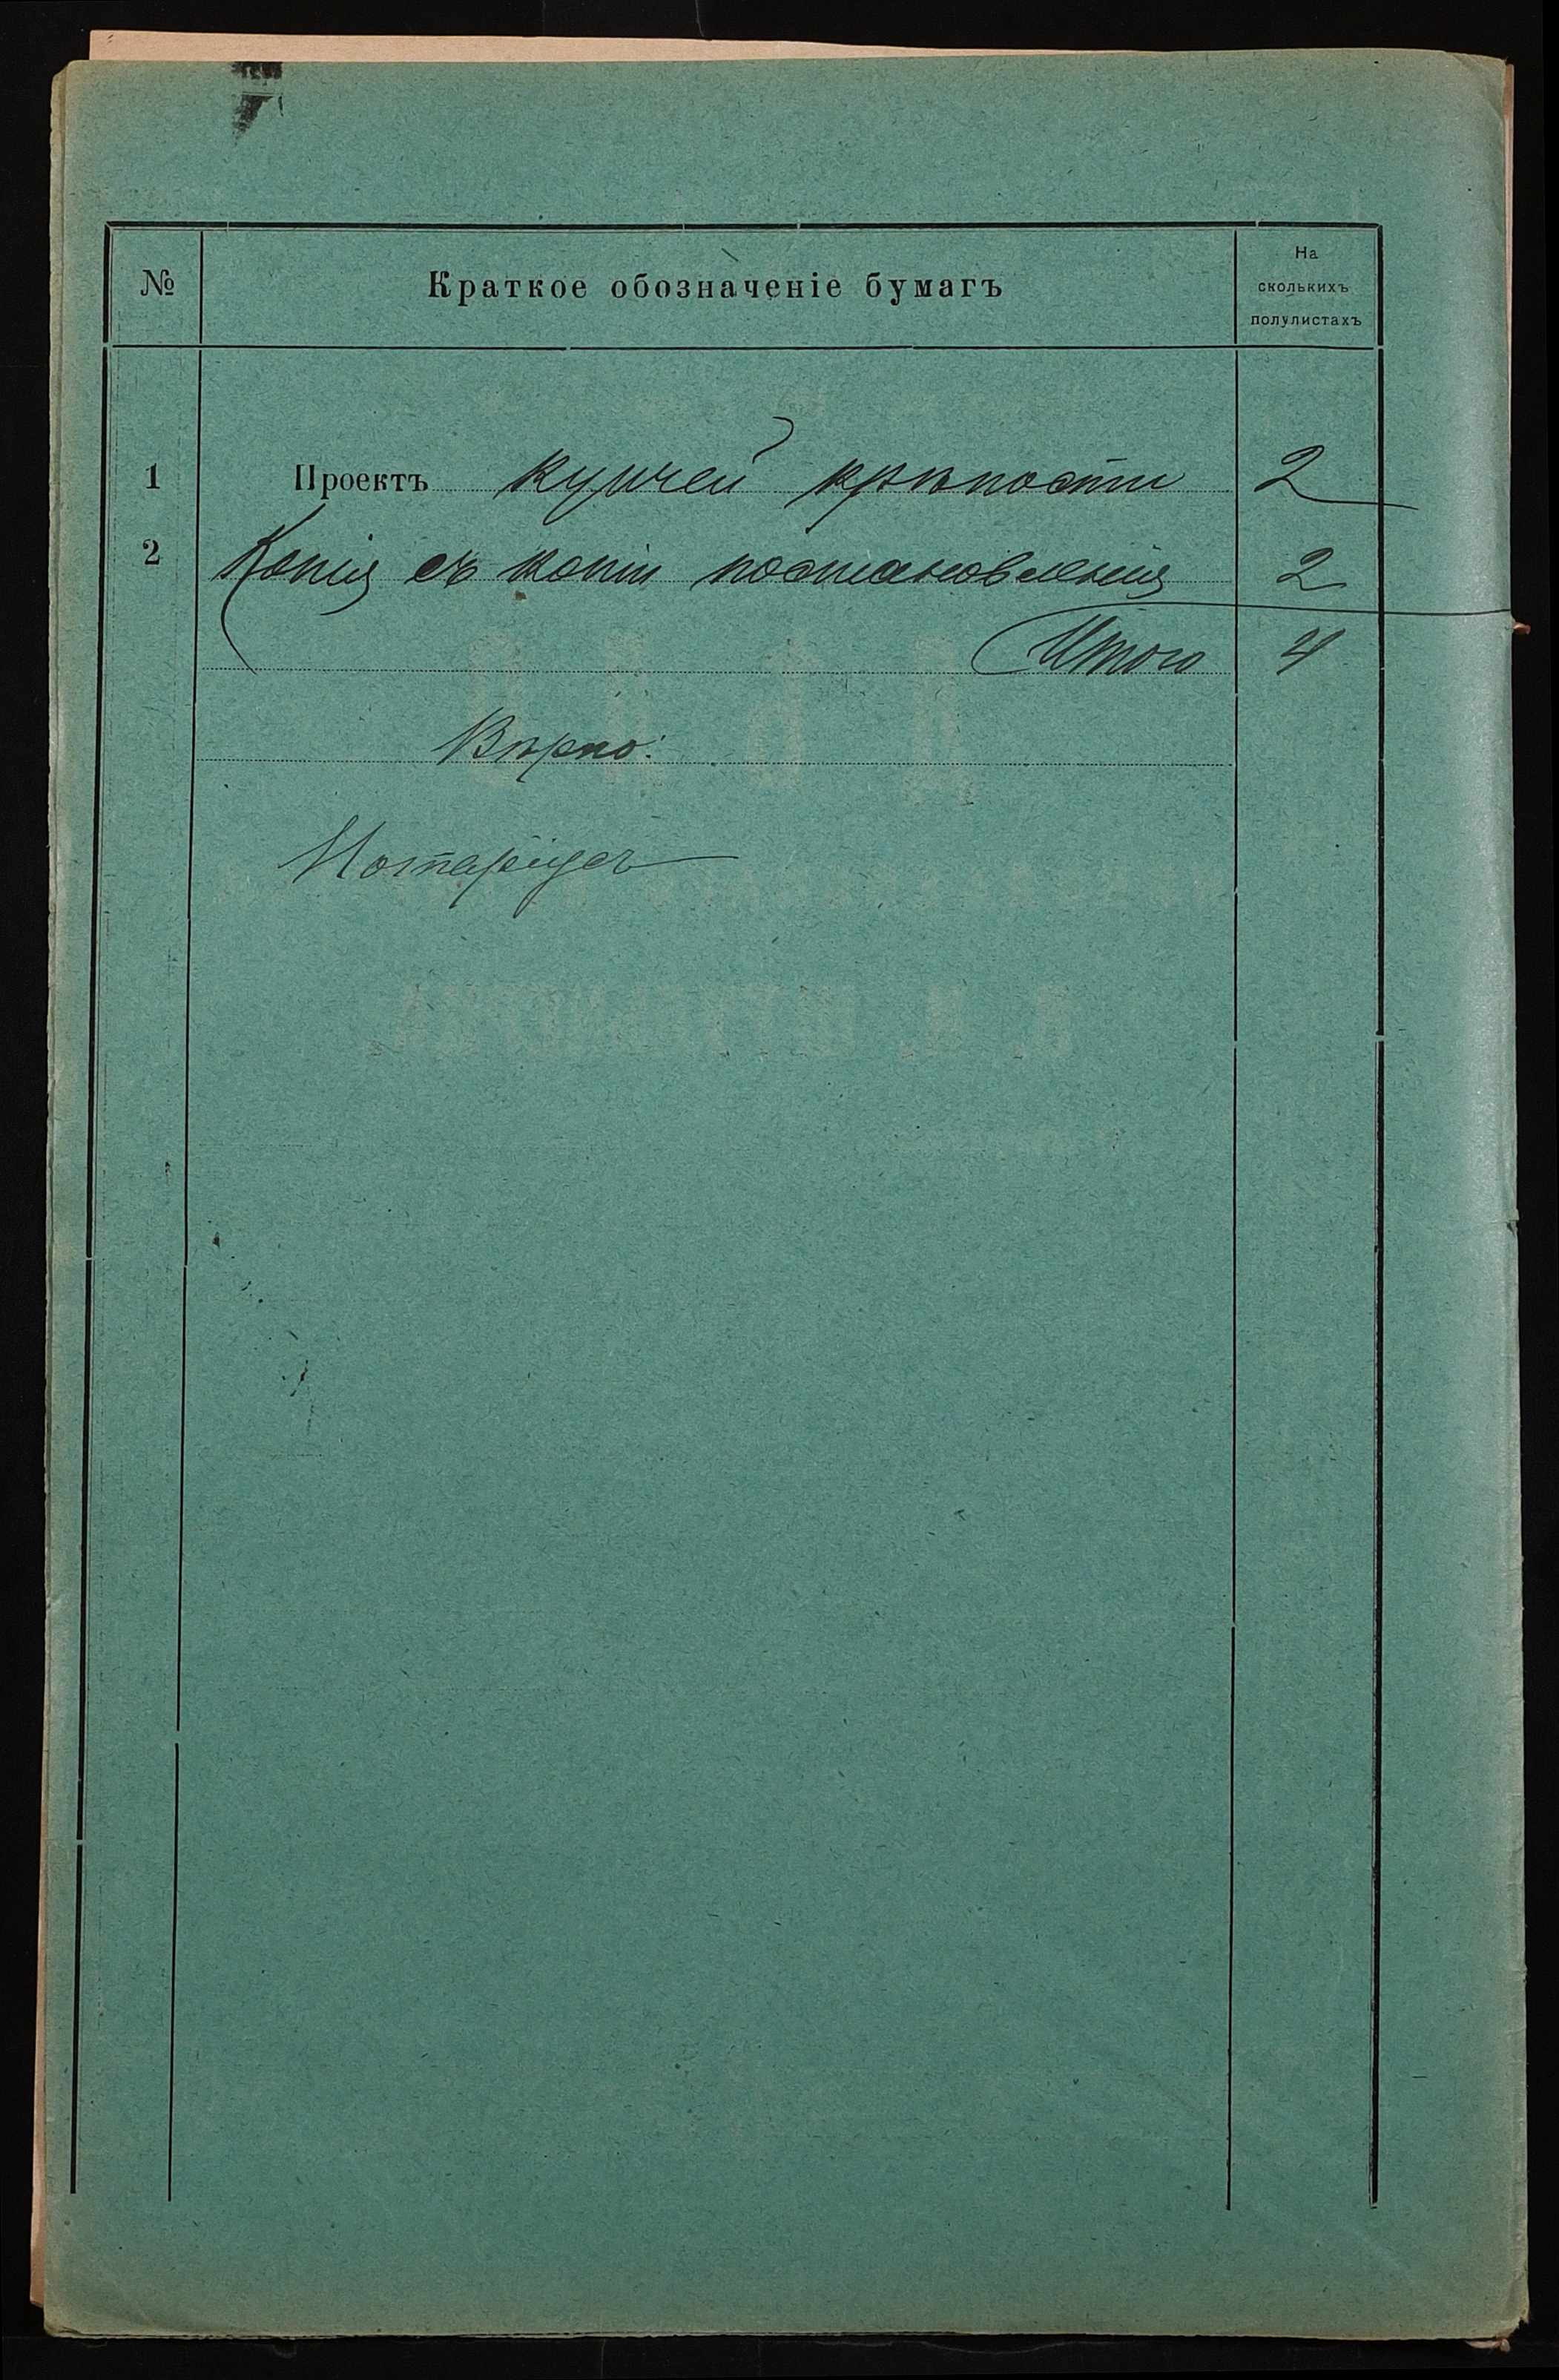 № Краткое обозначеніе бумагъ На
сколькихъ
полулистахъ
1 Проектъ купчей крѣпости 2
2 Копія съ копіи постановленія 2
Итого 4
Вѣрно:
Нотаріусъ